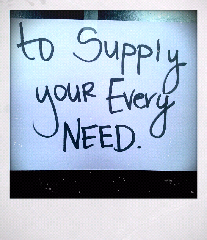 to Supply
your Every
NEED.